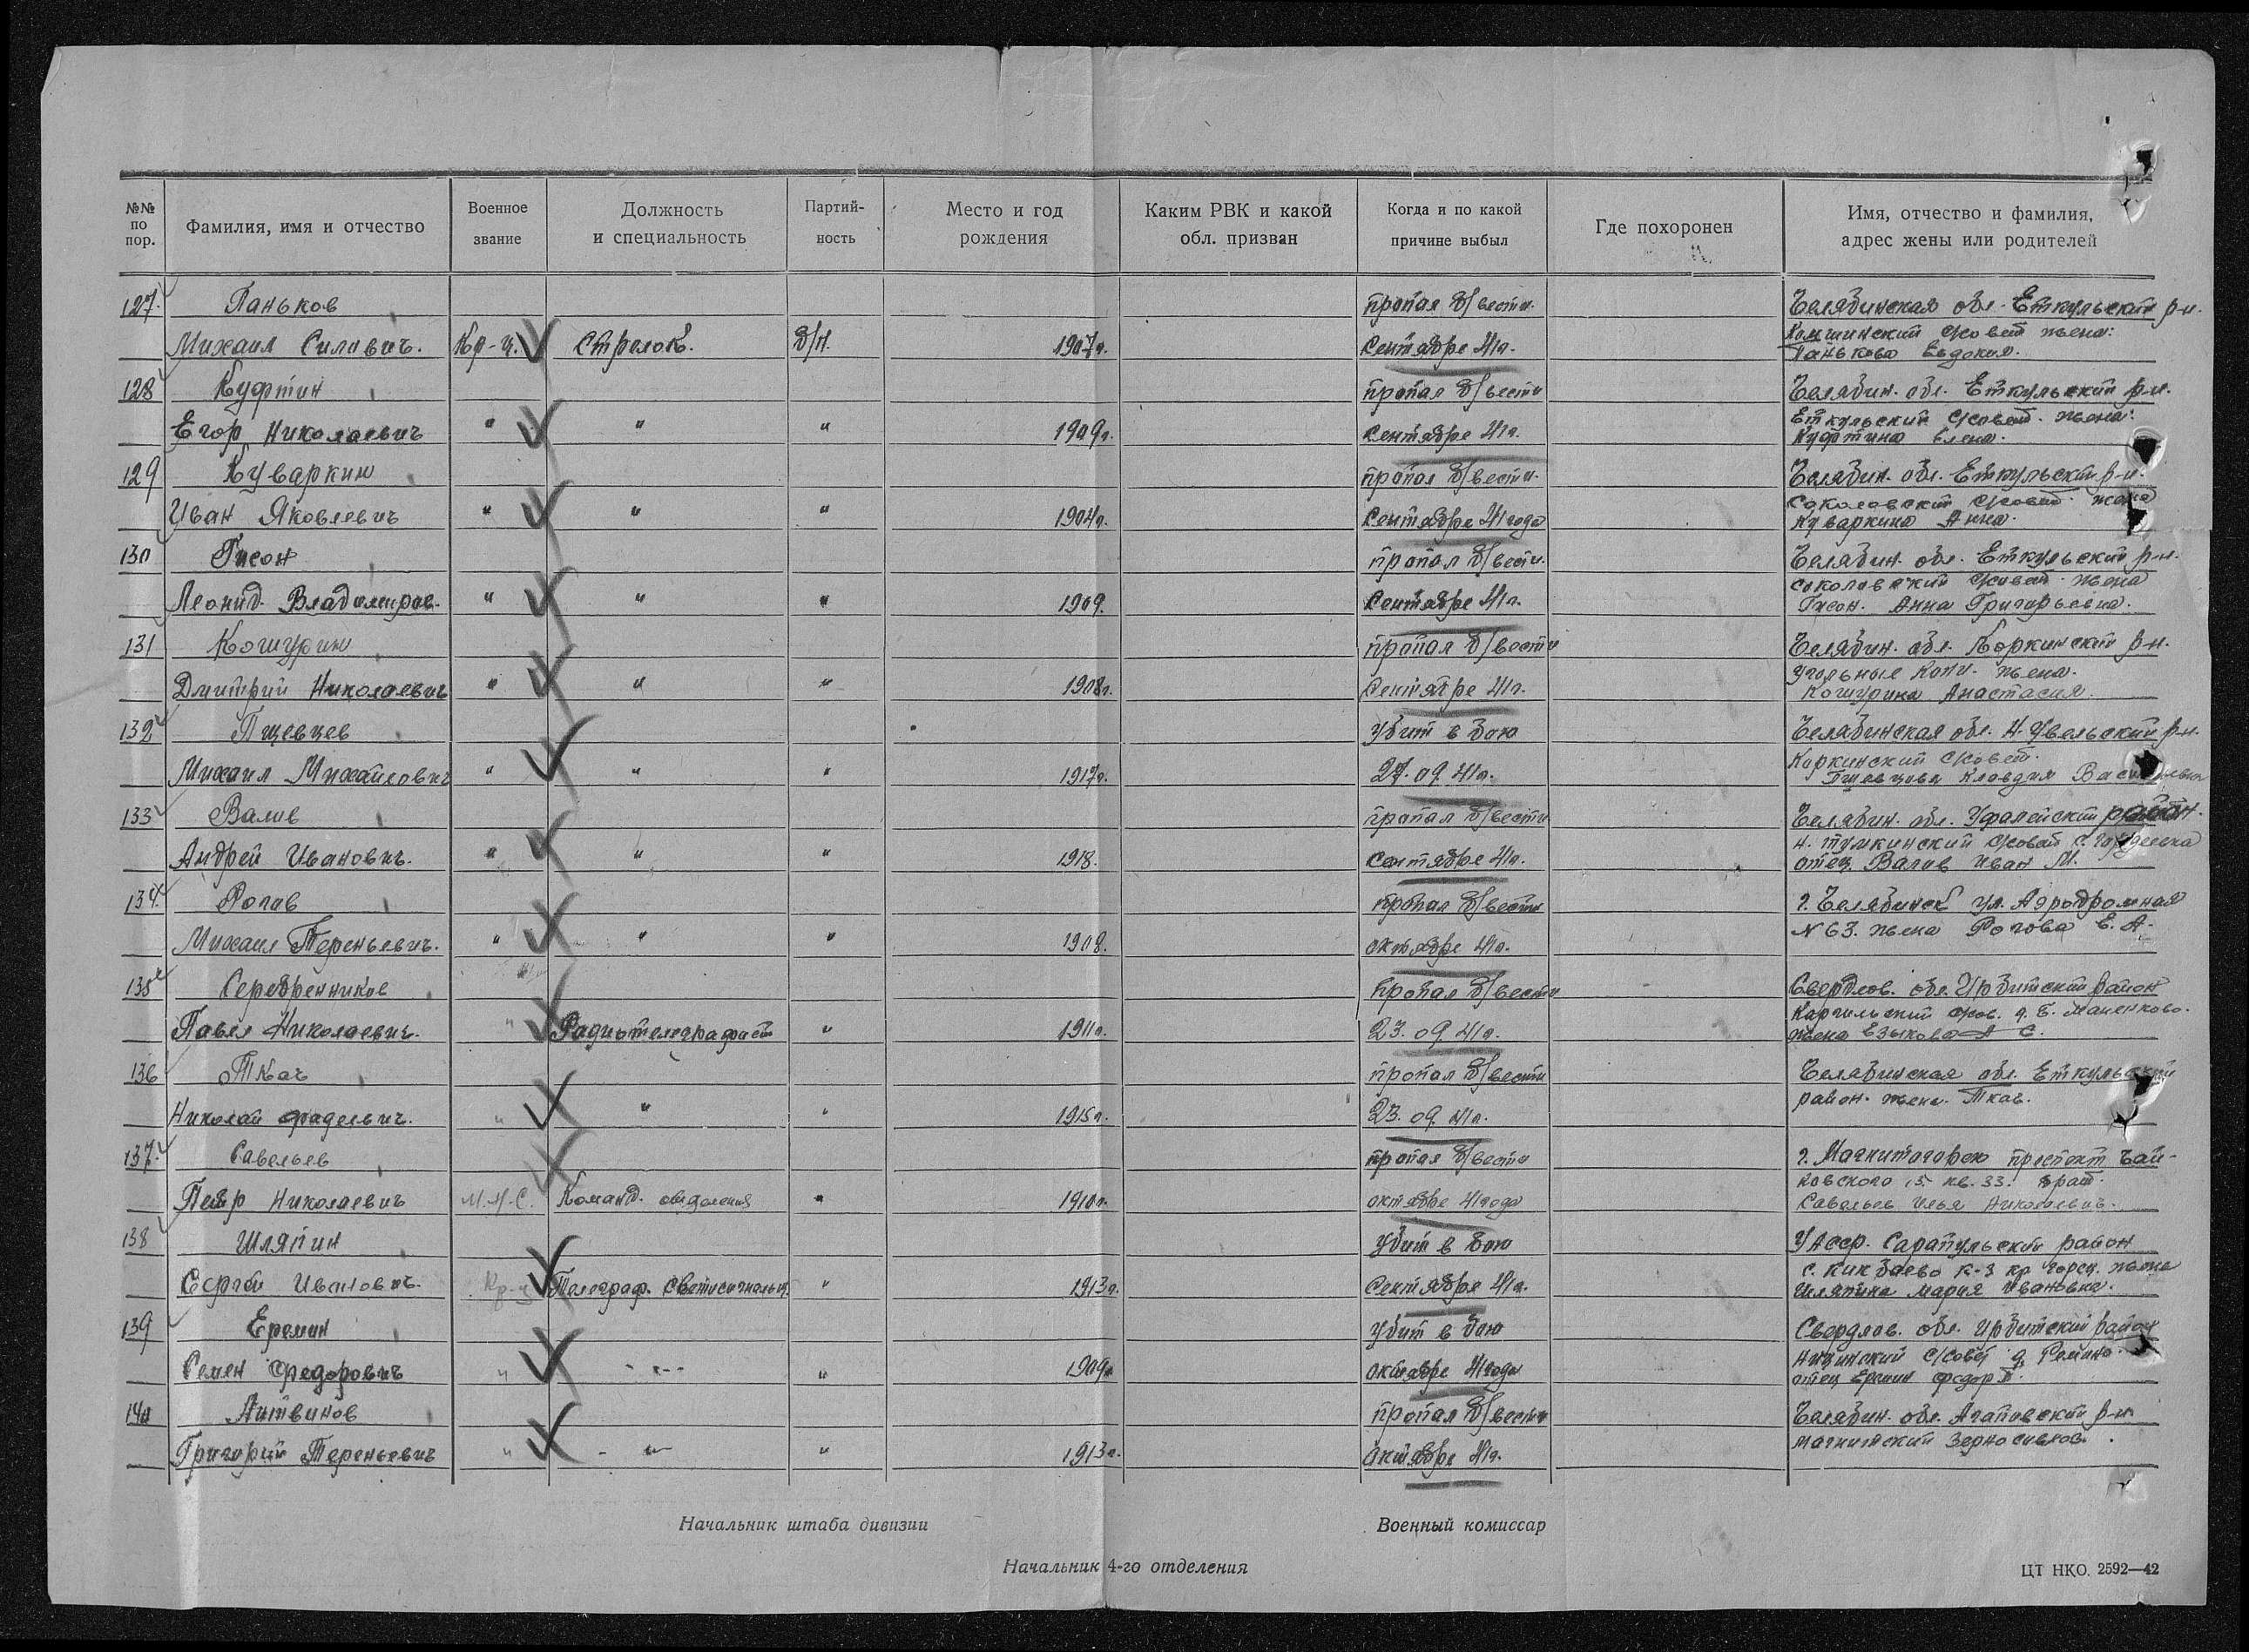 №№ по пор. Фамилия, имя и отчество Военное звание Должность и специальность Партий-ность Место и год рождения Каким РВК и какой обл. призван Когда и по какой причине выбыл Где похоронен Имя, отчество и фамилия, адрес жены или родителей
127. Паньков пропал б/вести. Челябинская обл. Еткульский р-н.
Михаил Силович. Кр-ц. Стрелок. б/п. 1907г. Сентябре 41г. Сҗовет жена:
Панькова Евдокия.
128 Куфтин пропал б/вести Челябин. обл. Еткульский р-н.
Егор Николаевич " " " 1909г. Сентябре 41г. Еткульский с/совет. жена:
Куфтина Елена.
129 Куваркин пропал б/вести. Челябин. обл. Еткульский р-н.
Иван Яковлевич " " " 1904г. Сентябре 41 года Соколовский с/совет. жена
Куваркина Анна.
130 Гисон пропал б/вести. Челябин. обл. Еткульский р-н.
Леонид Владимиров. " " " 1909. Сентябре 41г. Соколовский с/совет. жена
Гисон. Анна Григорьевна.
131 Кошурин пропал б/вести Челябин. обл. Коркинский р-н.
Дмитрий Николаевич " " " 1908г. Сентябре 41г. Угольные Копи. жена.
Кошурина Анастасия.
132 Пшевцев Убит в бою Челябинская обл. Н. Увельский р-н.
Михаил Михайлович " " " 1917г. 27.09.41г. Коркинский с/совет.
Пшевцова Клавдия
133 Валив пропал б/вести Челябин. обл. Уфалейский район.
Андрей Иванович. " " " 1918. Сентябре 41г. с/совет
отец. Валив Иван М.
134. Рогов пропал б/вести г. Челябинск ул. Аэродромная
Михаил Тереньевич. " " " 1908. октябре 41г. № 63. жена Рогова Е. А.
135 Серебренников пропал б/вести Свердлов. обл. Ирбитский район
Павел Николаевич. " Радиотелеграфист " 1911г. 23.09.41г. сҗов. д. Б.
жена Езыкова А С.
136 Ткач пропал б/вести Челябинская обл. Еткульский
Николай Фадеевич. " " " 1915г. 23.09.41г. район. жена. Ткач.
137. Савельев пропал б/вести г. Магнитогорск проспект Чай-
Петр Николаевич М.Н.С. Команд. отделения " 1910г. октябре 41 года ковского 15 кв. 33. брат.
Савельев Илья Николаевич.
138 Шляпин Убит в бою УАССР. Сарапульский район
Сергей Иванович. Кр-ц Телеграф. Светосигнальщ. " 1913г. Сентябре 41г. с. жена
Шляпина Мария Ивановна.
139 Еремин Убит в бою Свердлов. обл. Ирбитский район
Семен Федорович " -"- " 1909г октябре 41 года с/совет д.
отец Еремин Федор
140 Литвинов пропал б/вести Челябин. обл. Агаповский р-н
Григорий Тереньевич " -"- " 1913г. Октябре 41г. Магнитский Зерносовхоз.
Начальник штаба дивизии Военный комиссар
Начальник 4-го отделения ЦТ НКО. 2592—42